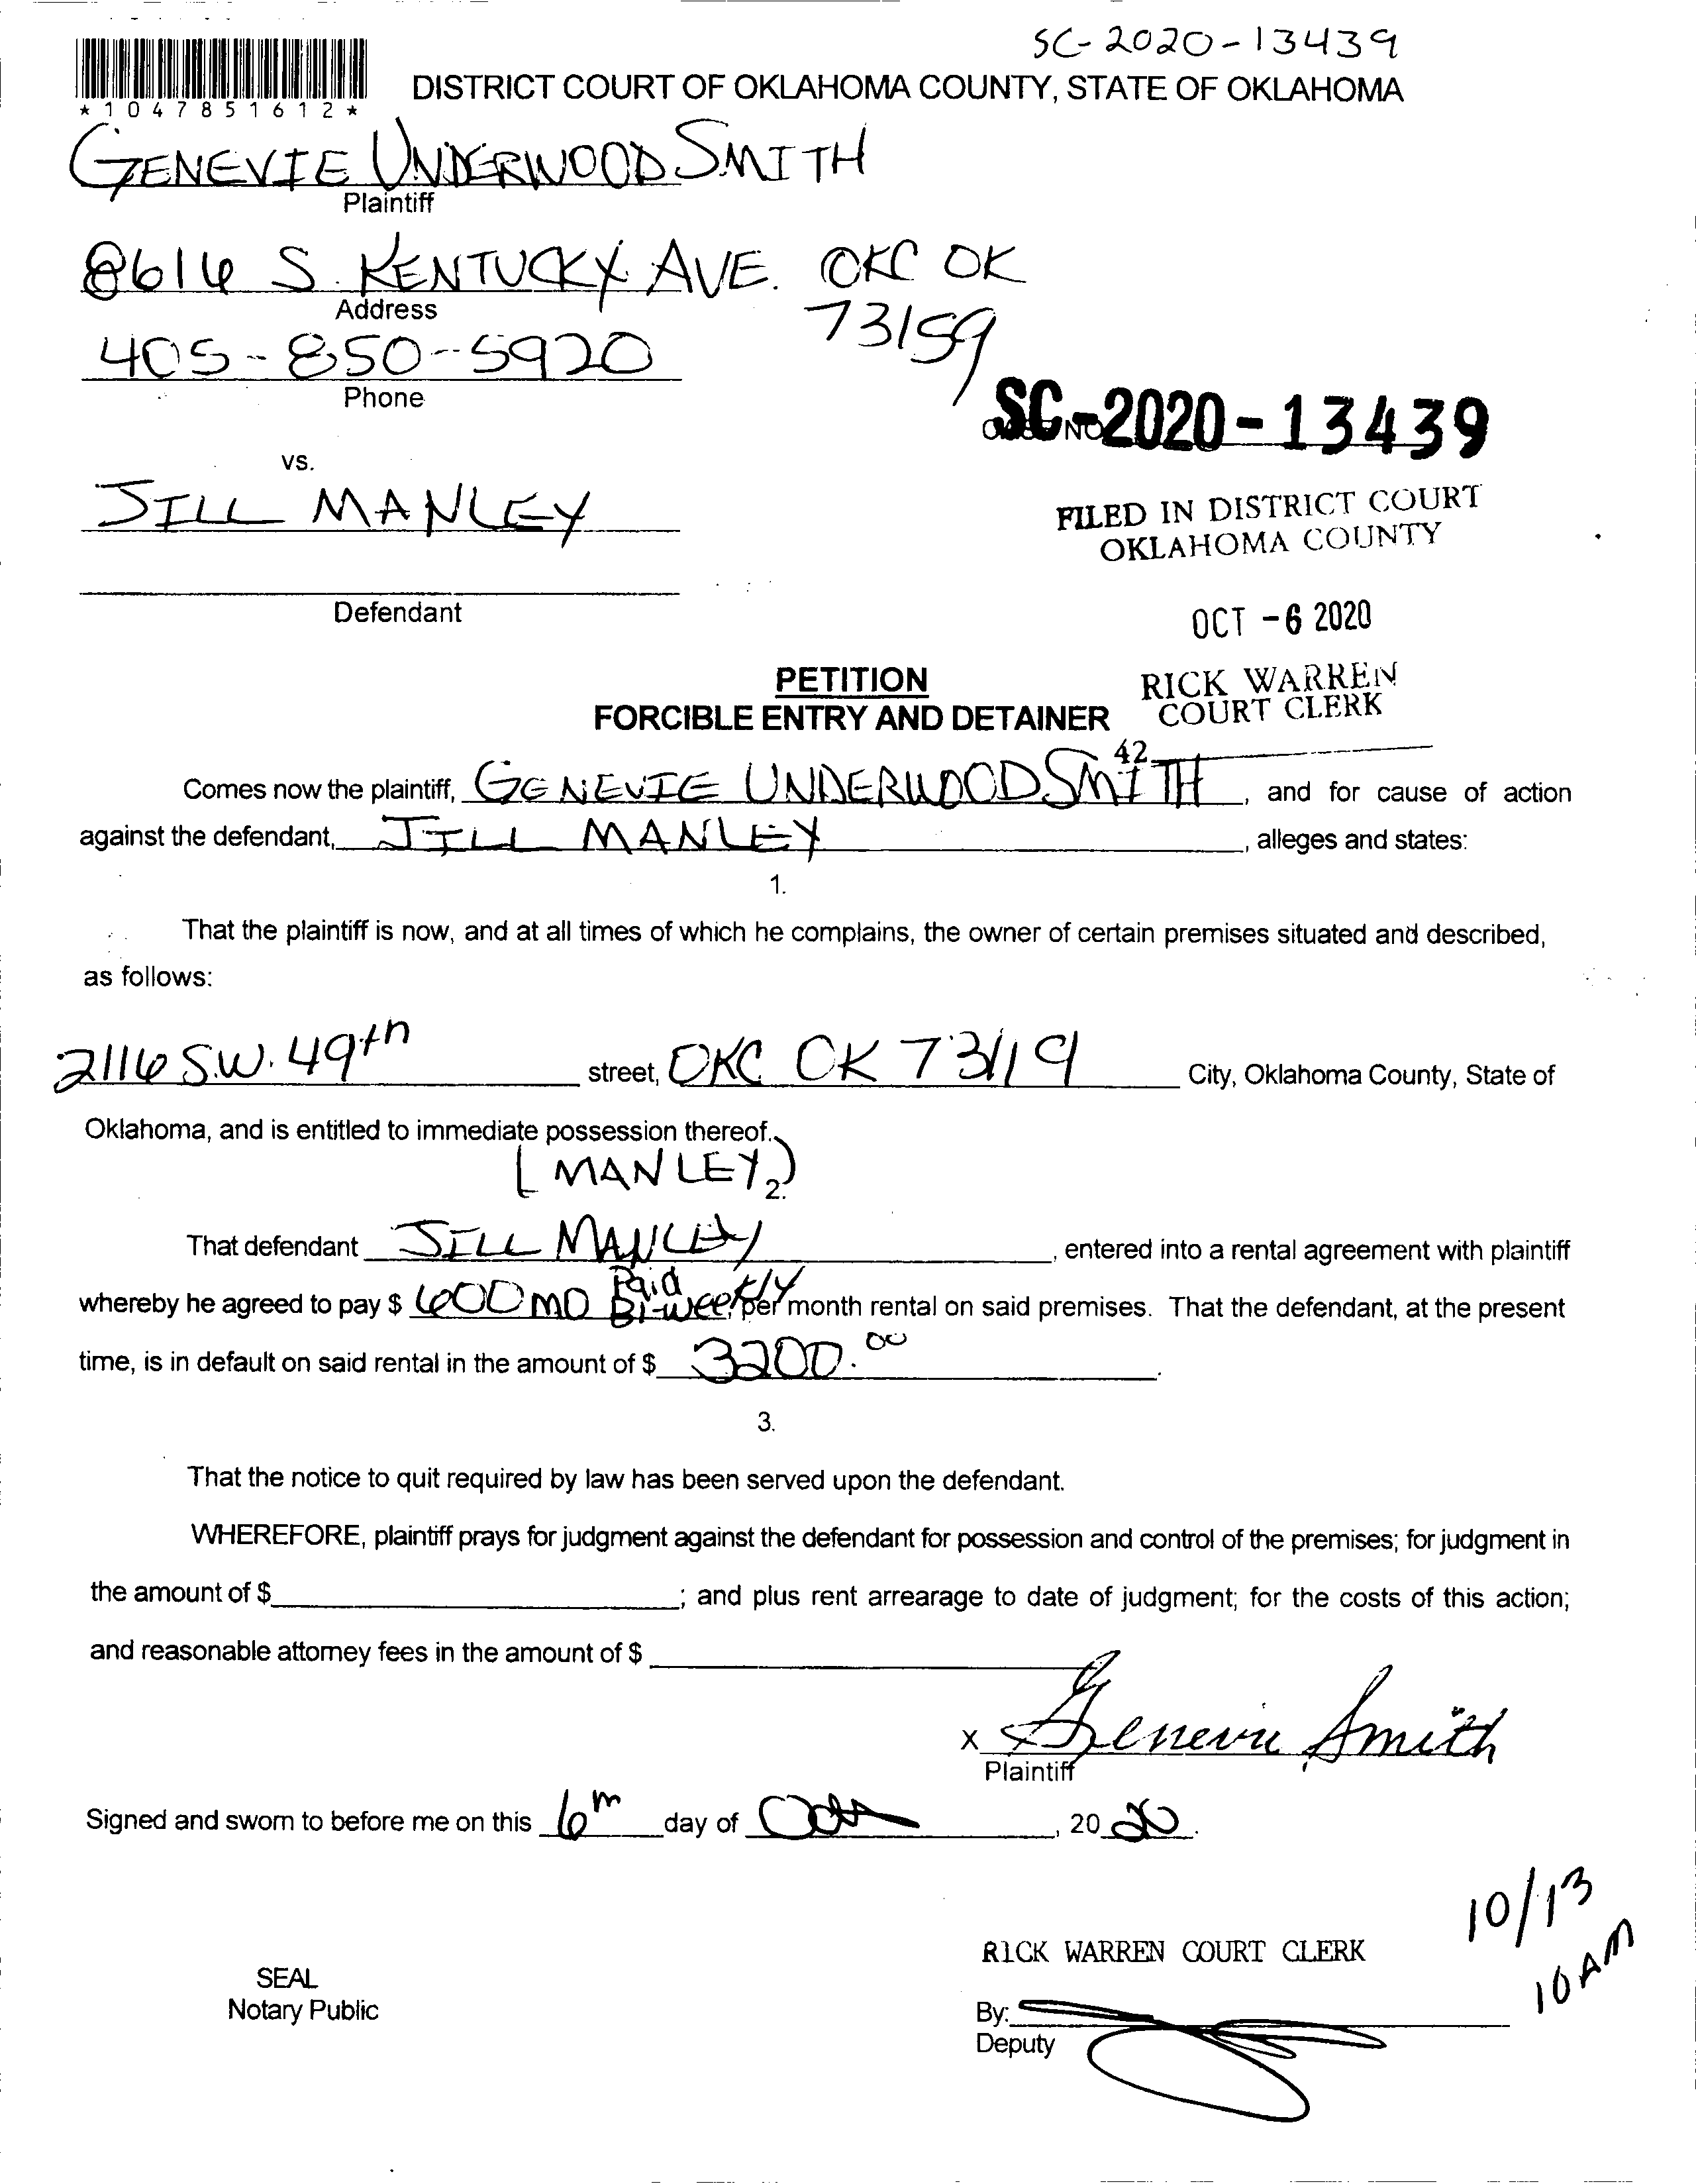 SC-2020-13439
*1047851612*
DISTRICT COURT OF OKLAHOMA COUNTY, STATE OF OKLAHOMA
GENEVIE UNDERWOOD SMITH
Plaintiff
8616 S. KENTUCKY AVE. OKC OK
73159
Address
405-850-5920
Phone
SC-2020-13439
vs.
JILL MANLEY
Defendant
FILED IN DISTRICT COURT
OKLAHOMA COUNTY
OCT -6 2020
RICK WARREN
COURT CLERK
42
PETITION
FORCIBLE ENTRY AND DETAINER
Comes now the plaintiff, GENEVIE UNDERWOOD SMITH, and for cause of action
against the defendant, JILL MANLEY, alleges and states:
1.
That the plaintiff is now, and at all times of which he complains, the owner of certain premises situated and described,
as follows:
2116 S.W. 49th street, OKC OK 73119 City, Oklahoma County, State of
Oklahoma, and is entitled to immediate possession thereof.
(MANLEY)
2.
That defendant JILL MANLEY, entered into a rental agreement with plaintiff
whereby he agreed to pay $ 600 MO Paid Bi-weekly per month rental on said premises. That the defendant, at the present
time, is in default on said rental in the amount of $ 3200.00.
3.
That the notice to quit required by law has been served upon the defendant.
WHEREFORE, plaintiff prays for judgment against the defendant for possession and control of the premises; for judgment in
the amount of $ ; and plus rent arrearage to date of judgment; for the costs of this action;
and reasonable attorney fees in the amount of $
x Genevie Smith
Plaintiff
Signed and sworn to before me on this 6th day of Oct, 2020.
10/13
10 AM
RICK WARREN COURT CLERK
SEAL
Notary Public
By:
Deputy